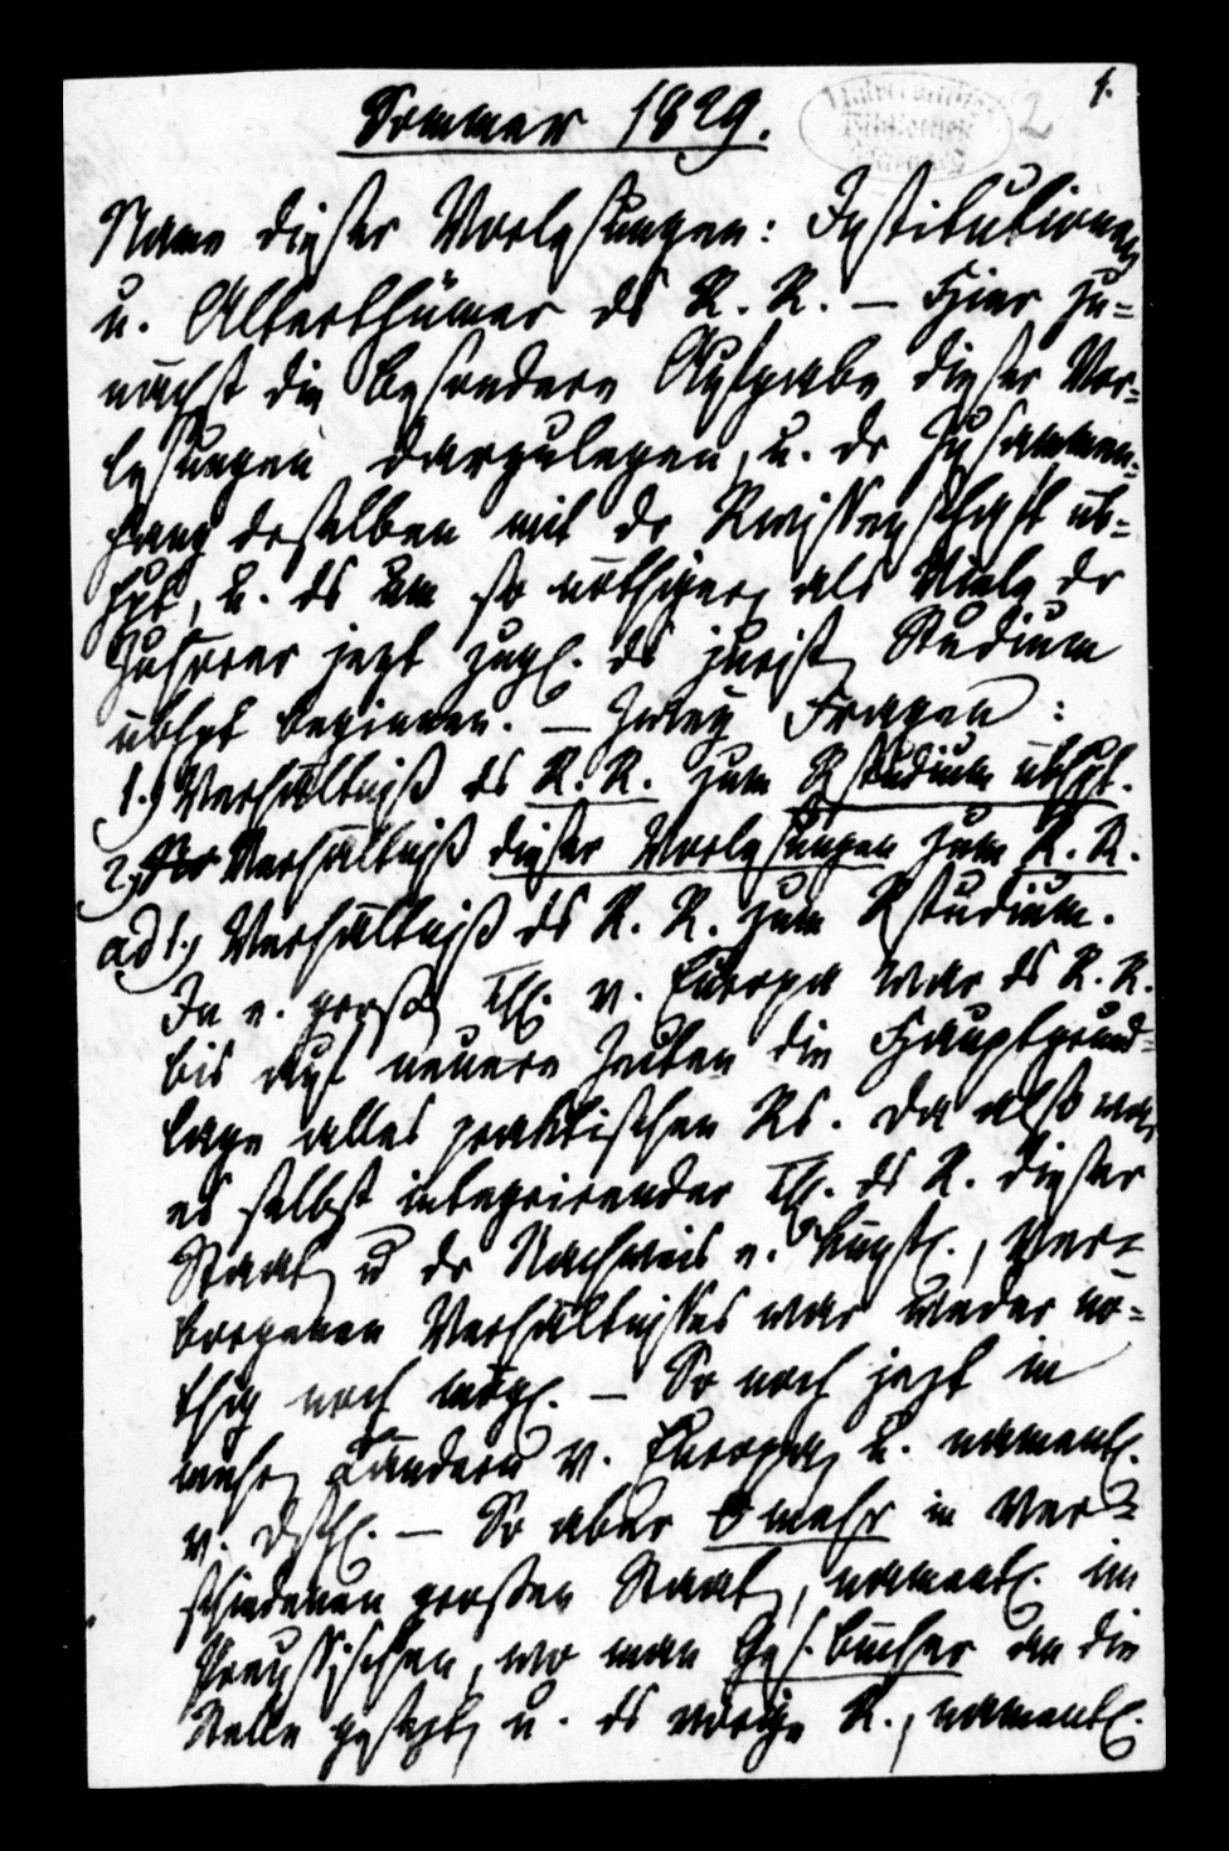 1.
2
Universitäts
Bibliothek
Sommer 1829.
Name dieser Vorlesungen: Institutionen
u. Alterthümer ds R. R. — Hier zu=
nächst die besondere Aufgabe dieser Vor=
lesungen darzulegen, u. dr Zusammen=
hang derselben mit dr Rwissenschaft üb=
hpt, u. ds um so nöthiger, als Viele dr
Zuhörer jezt zugl. ds jurist. Studium
übhpt beginnen. — Zwey Fragen:
1.) Verhältniß ds R. R. zum Rstudium übhpt.
2.) Verhältniß dieser Vorlesungen zum R. R.
ad 1.) Verhältniß ds R. R. zum Rstudium.
In e. großen Thl. v. Europa war ds R. R.
bis auf neuere Zeiten die Hauptgrund=
lage alles praktischen Rs. Da also war
es selbst integrirender Thl. ds R. dieser
Staaten u dr Nachweis e. künstl., ver=
borgenen Verhältnisses war weder nö=
thig noch mögl. — So noch jezt in
mehr. Ländern v. Europa, u. namentl.
v. Dschl. — So aber mehr in ver=
schiedenen großen Staaten, namentl. im
Preussischen, wo man Ges. bücher an die
Stelle gesezt, u. ds vorige R., namentl.